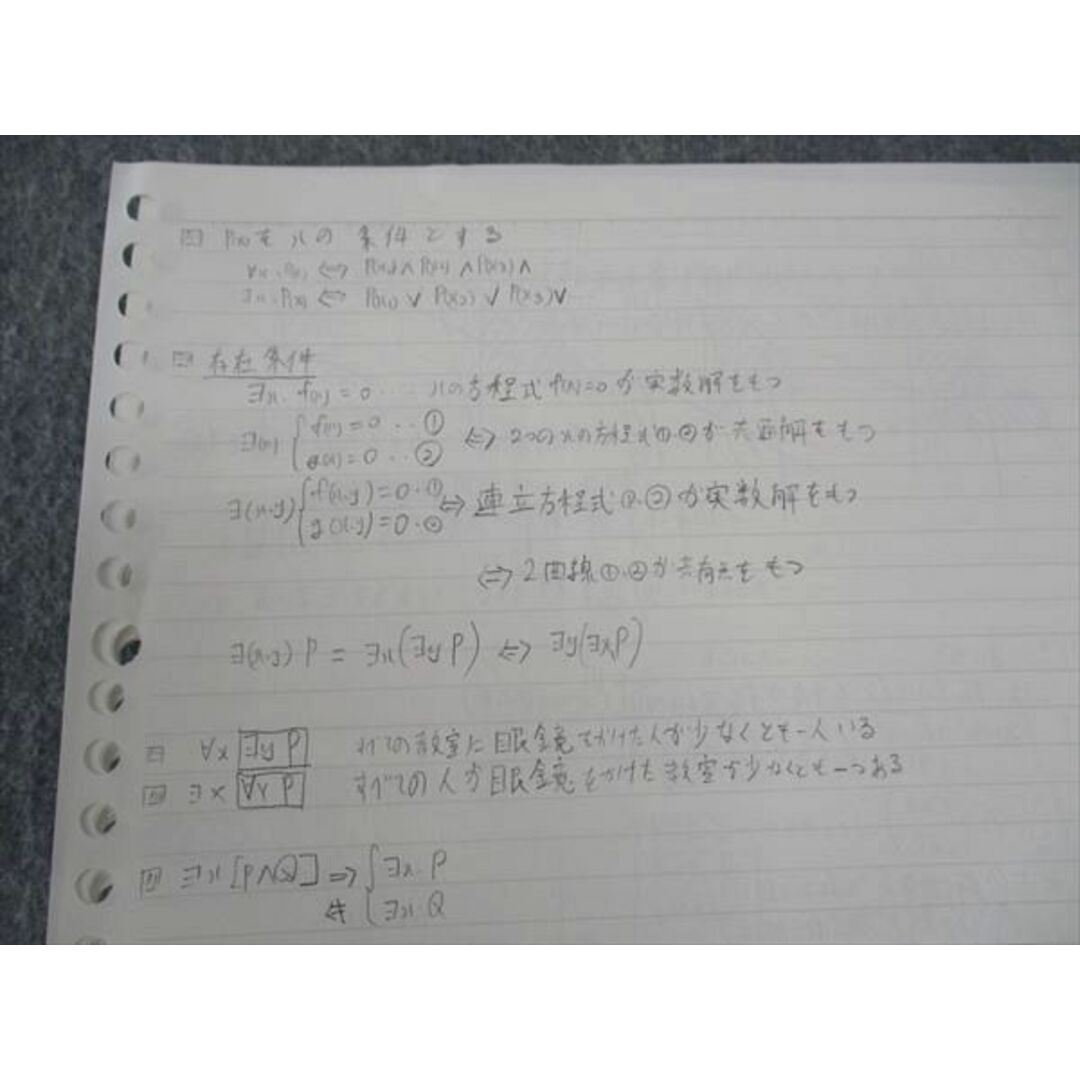 P(x)をxの条件とする
∀x. P(x) ⇔ P(x₁)∧P(x₂)∧P(x₃)∧
∃x. P(x) ⇔ P(x₁) ∨ P(x₂) ∨ P(x₃)∨
存在条件
∃x. f(x)=0 ‥ xの方程式 f(x)=0 が実数解をもつ
∃(x) { f(x)=0 ‥ ① ⇔ 2つのxの方程式①.②が共通解をもつ
g(x)=0 ‥ ②
∃(x.y) { f(x.y)=0.① ⇔ 連立方程式①.②が実数解をもつ
g(x.y)=0.②
⇔ 2曲線①.②が共有点をもつ
∃(x.y) P = ∃x(∃y P) ⇔ ∃y(∃x P)
∀x ∃y P すべての教室に眼鏡をかけた人が少なくとも一人いる
∃x ∀y P すべての人が眼鏡をかけた教室が少なくとも一つある
∃x [P∧Q] ⇒ { ∃x. P
⇍ ∃x. Q